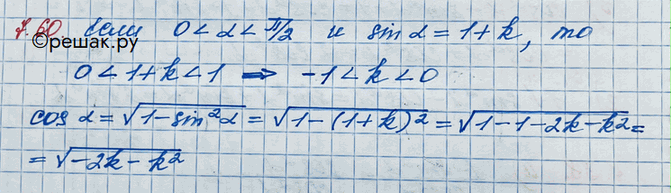 7.60. Если 0 < α < π/2 и sin α = 1 + k, то
©решак.ру
0 < 1 + k < 1 ⇒ -1 < k < 0
cos α = √(1 - sin²α) = √(1 - (1 + k)²) = √(1 - 1 - 2k - k²) =
= √(-2k - k²)